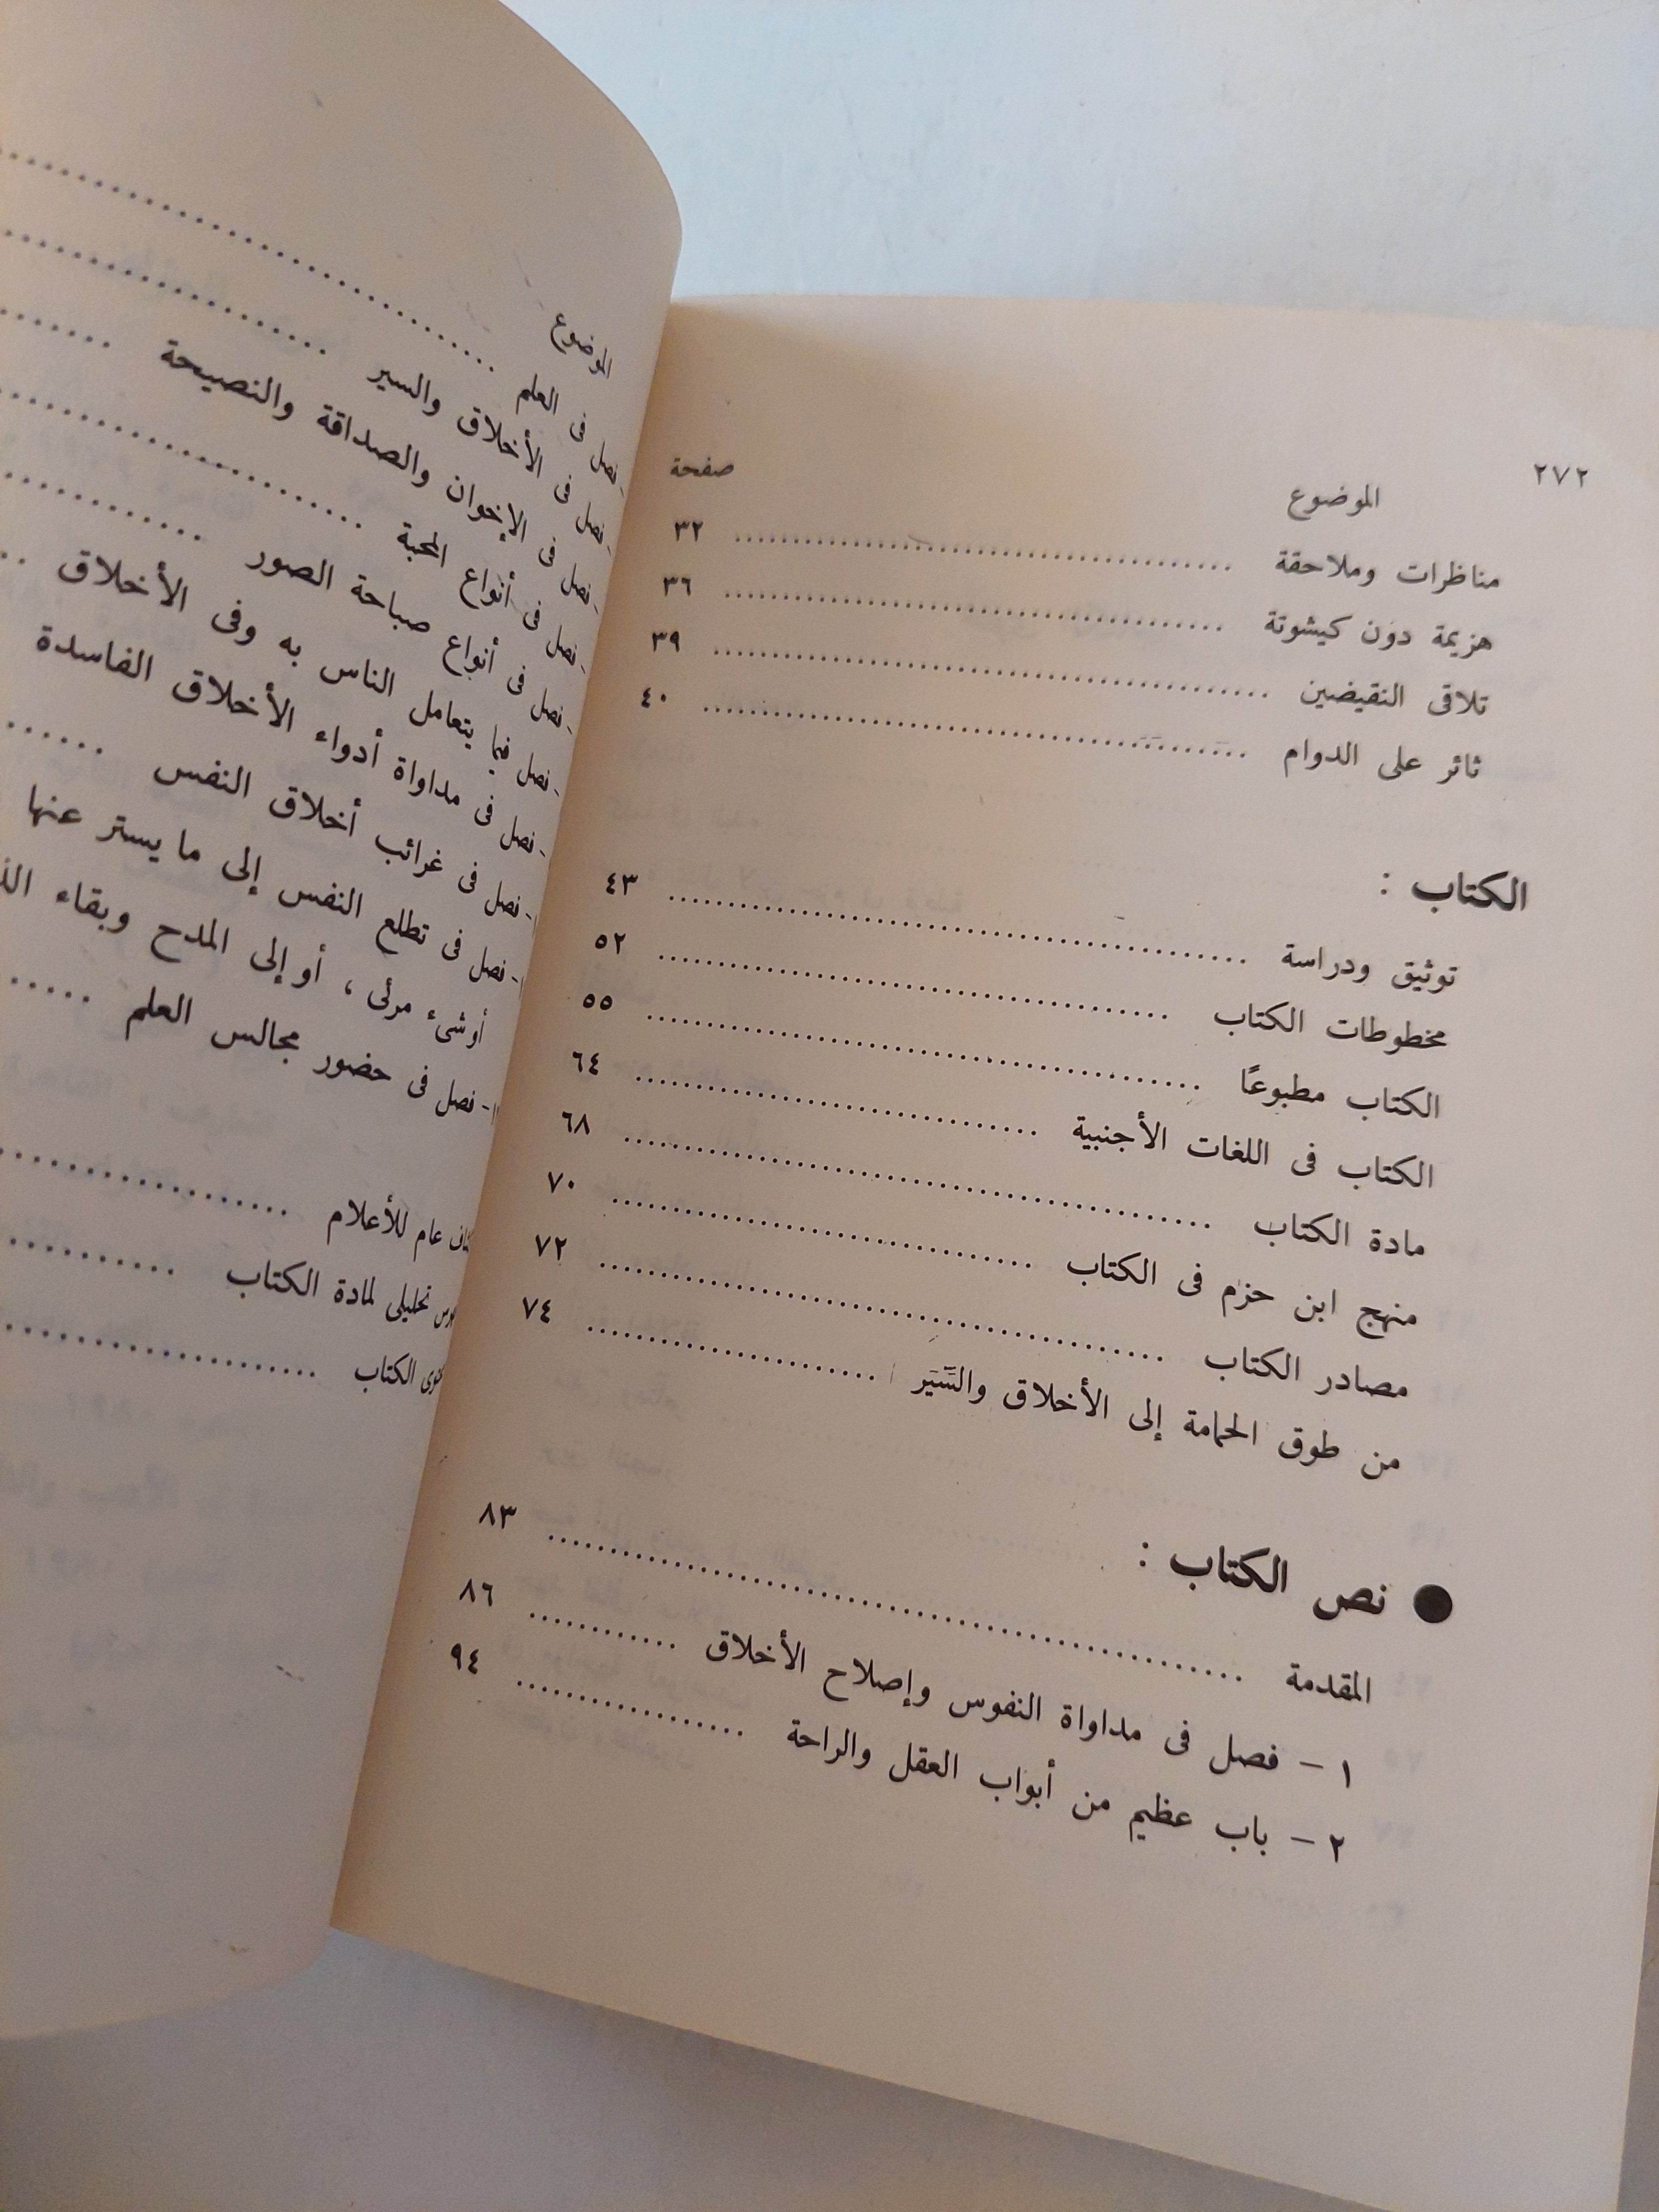 ٢٧٢
الموضوع صفحة
مناظرات وملاحقة ........ ٣٢
هزيمة دون كيشوتة ........ ٣٦
تلاقى النقيضين ........ ٣٩
ثائر على الدوام ........ ٤٠
الكتاب :
توثيق ودراسة ........ ٤٣
مخطوطات الكتاب ........ ٥٢
الكتاب مطبوعًا ........ ٥٥
الكتاب فى اللغات الأجنبية ........ ٦٤
مادة الكتاب ........ ٦٨
منهج ابن حزم فى الكتاب ........ ٧٠
مصادر الكتاب ........ ٧٢
من طوق الحمامة إلى الأخلاق والسِّيَر ........ ٧٤
● نص الكتاب :
المقدمة ........ ٨٣
١ – فصل فى مداواة النفوس وإصلاح الأخلاق ........ ٨٦
٢ – باب عظيم من أبواب العقل والراحة ........ ٩٤
الموضوع
فصل فى العلم ........
فصل فى الأخلاق والسير ........
فصل فى الإخوان والصداقة والنصيحة ........
فصل فى أنواع المحبة ........
فصل فى أنواع صباحة الصور ........
فصل فيما يتعامل الناس به وفى الأخلاق ..
فصل فى مداواة أدواء الأخلاق الفاسدة
فصل فى غرائب أخلاق النفس ........
فصل فى تطلع النفس إلى ما يستر عنها
أو شىء مرئى ، أو إلى المدح وبقاء
فصل فى حضور مجالس العلم ........
عام للأعلام ........
تحليلى لمادة الكتاب ........
الكتاب ........